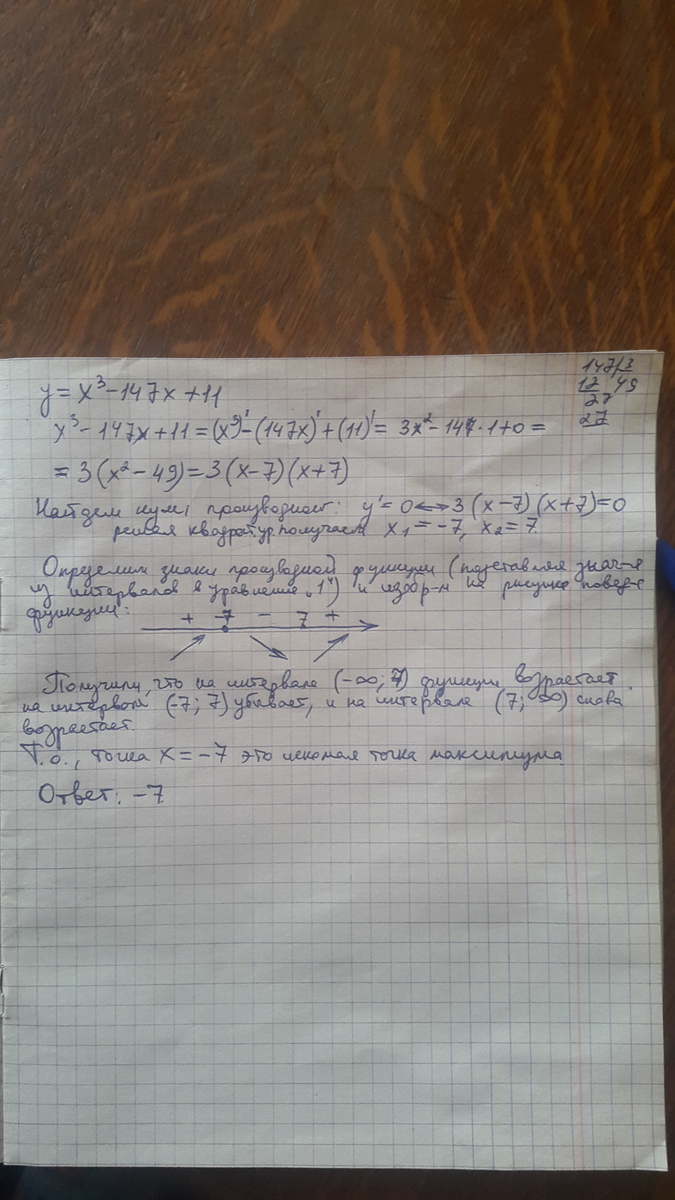 y = x³ - 147x + 11
147 3
12 49
27
27
x³ - 147x + 11 = (x³)' - (147x)' + (11)' = 3x² - 147 · 1 + 0 =
= 3(x² - 49) = 3(x - 7)(x + 7)
Найдем нули производной: y' = 0 ⟷ 3(x - 7)(x + 7) = 0
решая квадрат.ур.получаем x₁ = -7, x₂ = 7.
Определим знаки производной функции (подставляя знач-я
из интервалов в уравнение „1") и изобр-м на рисунке повед-е
функции:
+ -7 - 7 +
Получили, что на интервале (-∞; 7) функция возрастает,
на интервале (-7; 7) убывает, и на интервале (7; ∞) снова
возрастает.
Т.о., точка x = -7 это искомая точка максимума.
Ответ: -7